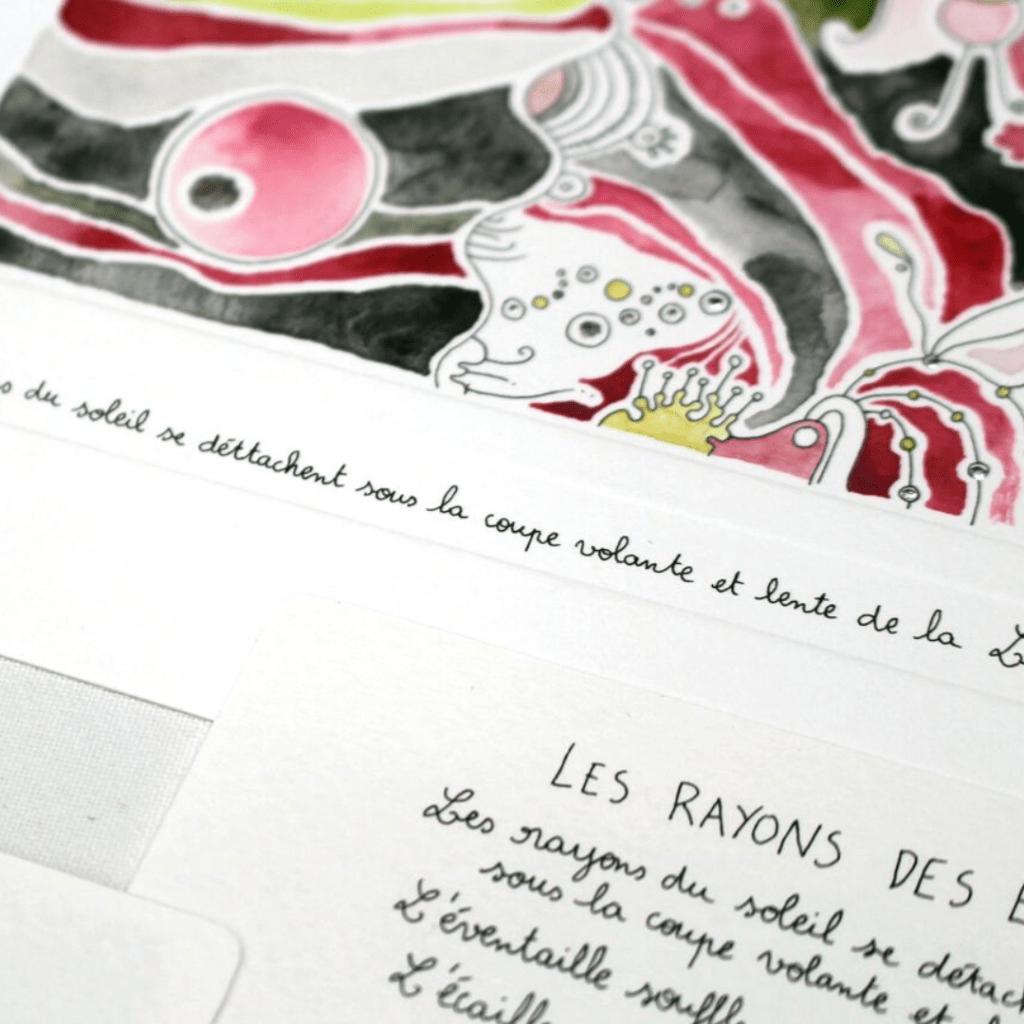 du soleil se déttachent sous la coupe volante et lente de la
LES RAYONS DES
Les rayons du soleil se
sous la coupe volante et
L'éventaille